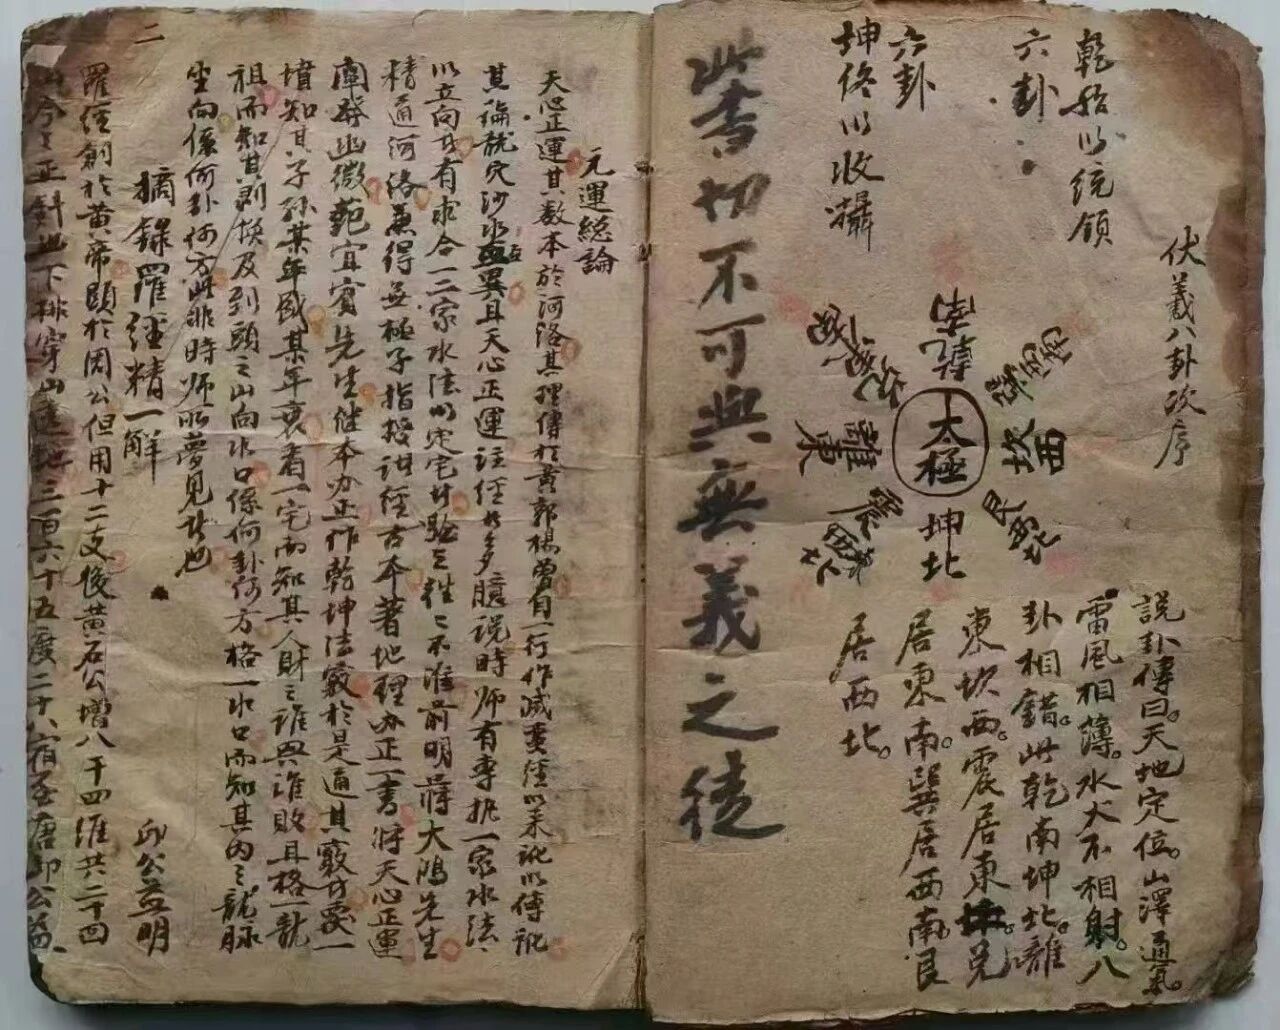 伏羲八卦次序
乾始以統領
六卦
六卦
坤終以收攝
乾南
兌東南
離東
震東北
太極
巽西南
坎西
艮西北
坤北
説卦傳曰。天地定位。山澤通氣。
雷風相薄。水火不相射。八
卦相錯。此乾南坤北。離
東坎西。震居東兌
居東南。巽居西南。艮
居西北。
此書切不可與無義之徒
元運総論
天心正運其数本於河洛其理傳於黄郭楊曾自一行作滅蛮経以来訛以傳訛
其論龍穴沙水無異耳天心正運諸経多臆説時师有専执一家水法
以立向共有求合一二家水法以定宅
精通河洛兼得無極子指授諸经古本著地理办正一書将天心正運
闡發幽微范宜賓先生继本办正作乾坤法竅於是通其竅
墳知其子孫某年盛某年衰看一宅而知其人財之誰興誰敗且格一龍
祖而知其剥换及到頭之山向水口係何卦何方格一水口而知其内之龍脉
坐向係何卦何方此非時师所夢見者也
摘錄羅經精一解
邱公益明
羅經創於黄帝顕於周公但用十二支後黄石公增八干四維共二十四
山今之正針也下排穿山透地三百六十五度二十八宿至唐邱公益
二